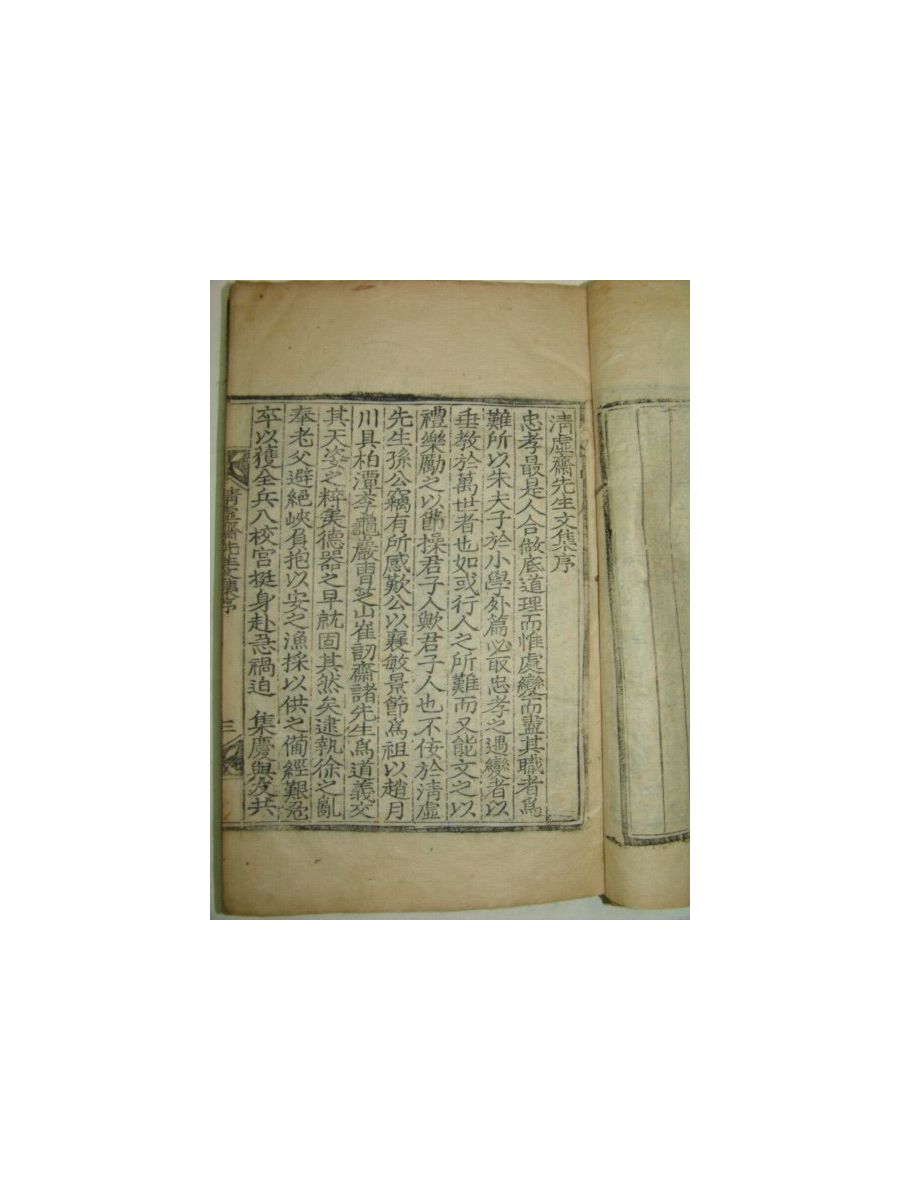 清虛齋先生文集序
忠孝最是人合做底道理而惟處變而盡其職者爲
難所以朱夫子於小學外篇必取忠孝之遇變者以
垂教於萬世者也如或行人之所難而又能文之以
禮樂勵之以節操君子人歟君子人也不佞於淸虛
先生孫公竊有所感歎公以襄敏景節爲祖以趙月
川具柏潭李龜巖曺芝山崔訒齋諸先生爲道義交
其天姿之粹美德器之早就固其然矣逮執徐之亂
奉老父避絕峽負抱以安之漁採以供之備經艱危
卒以獲全兵入校宮挺身赴急禍迫 集慶與友共
清虛齋先生文集序
三